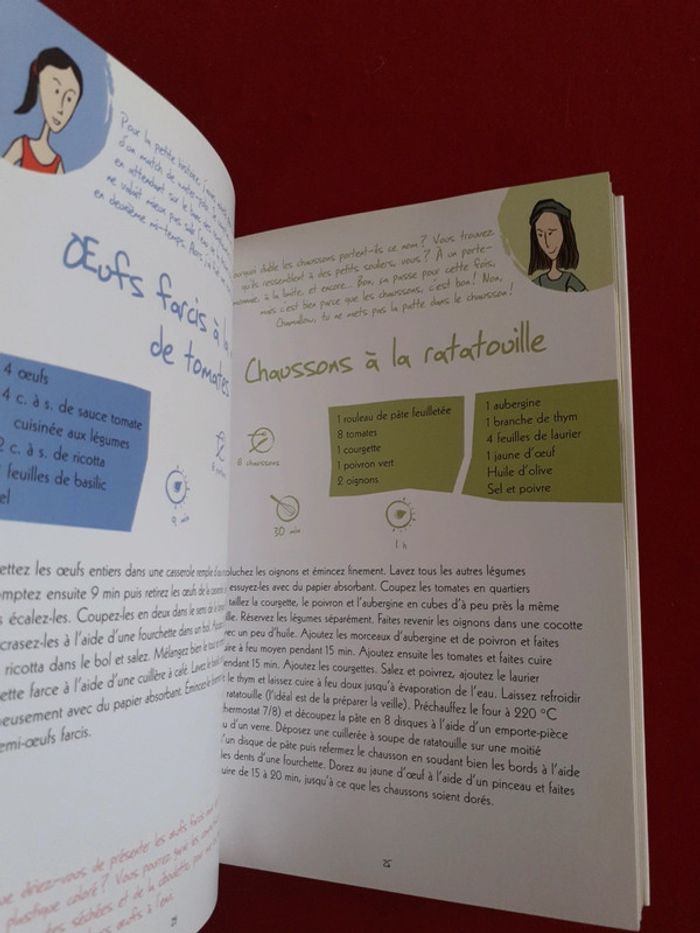 Pour la petite histoire, j'avais
d'un match de water-polo
en attendant sur le banc des
ne valait mieux pas salir l'eau de
en deuxième mi-temps. Alors, j'ai
Œufs farcis à la
de tomates
4 œufs
4 c. à s. de sauce tomate
cuisinée aux légumes
2 c. à s. de ricotta
feuilles de basilic
el
9 min
ettez les œufs entiers dans une casserole remplie d'eau
omptez ensuite 9 min puis retirez les œufs de la casserole
s écalez-les. Coupez-les en deux dans le sens de la
crasez-les à l'aide d'une fourchette dans un bol.
ricotta dans le bol et salez. Mélangez bien le tout
ette farce à l'aide d'une cuillère à café. Lavez le basilic
neusement avec du papier absorbant. Émincez-le
emi-œufs farcis.
ue diriez-vous de présenter les œufs farcis
plastique coloré ? Vous pourrez
tes séchées et de la ciboulette, par
œufs à l'envi.
ourquoi diable les chaussons portent-ils ce nom ? Vous trouvez
qu'ils ressemblent à des petits souliers, vous ? À un porte-
monnaie, à la limite, et encore... Bon, ça passe pour cette fois,
mais c'est bien parce que les chaussons, c'est bon ! Non,
Chamallow, tu ne mets pas la patte dans le chausson !
Chaussons à la ratatouille
8 chaussons
30 min
1 h
1 rouleau de pâte feuilletée
8 tomates
1 courgette
1 poivron vert
2 oignons
1 aubergine
1 branche de thym
4 feuilles de laurier
1 jaune d'œuf
Huile d'olive
Sel et poivre
pluchez les oignons et émincez finement. Lavez tous les autres légumes
essuyez-les avec du papier absorbant. Coupez les tomates en quartiers
taillez la courgette, le poivron et l'aubergine en cubes d'à peu près la même
ille. Réservez les légumes séparément. Faites revenir les oignons dans une cocotte
vec un peu d'huile. Ajoutez les morceaux d'aubergine et de poivron et faites
uire à feu moyen pendant 15 min. Ajoutez ensuite les tomates et faites cuire
endant 15 min. Ajoutez les courgettes. Salez et poivrez, ajoutez le laurier
t le thym et laissez cuire à feu doux jusqu'à évaporation de l'eau. Laissez refroidir
ratatouille (l'idéal est de la préparer la veille). Préchauffez le four à 220 °C
thermostat 7/8) et découpez la pâte en 8 disques à l'aide d'un emporte-pièce
u d'un verre. Déposez une cuillerée à soupe de ratatouille sur une moitié
'un disque de pâte puis refermez le chausson en soudant bien les bords à l'aide
les dents d'une fourchette. Dorez au jaune d'œuf à l'aide d'un pinceau et faites
uire de 15 à 20 min, jusqu'à ce que les chaussons soient dorés.
25